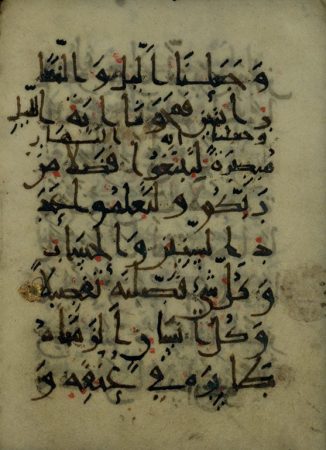 وَجَعَلْنَا الَّيْلَ وَالنَّهَا
رَ ايَتَيْنِ فَمَحَوْنَا ايَةَ الَّيْلِ
وَجَعَلْنَا ايَةَ النَّهَارِ
مُبْصِرَةً لِتَبْتَغُوا فَضْلًا مِنْ
رَبِّكُمْ وَلِتَعْلَمُوا عَدَ
دَ السِّنِينَ وَالْحِسَابَ
وَكُلَّ شَيْءٍ فَصَّلْنَهُ تَفْصِيلًا
وَكُلَّ اِنْسَانٍ اَلْزَمْنَاهُ
طَائِرَهُ فِي عُنُقِهِ وَ